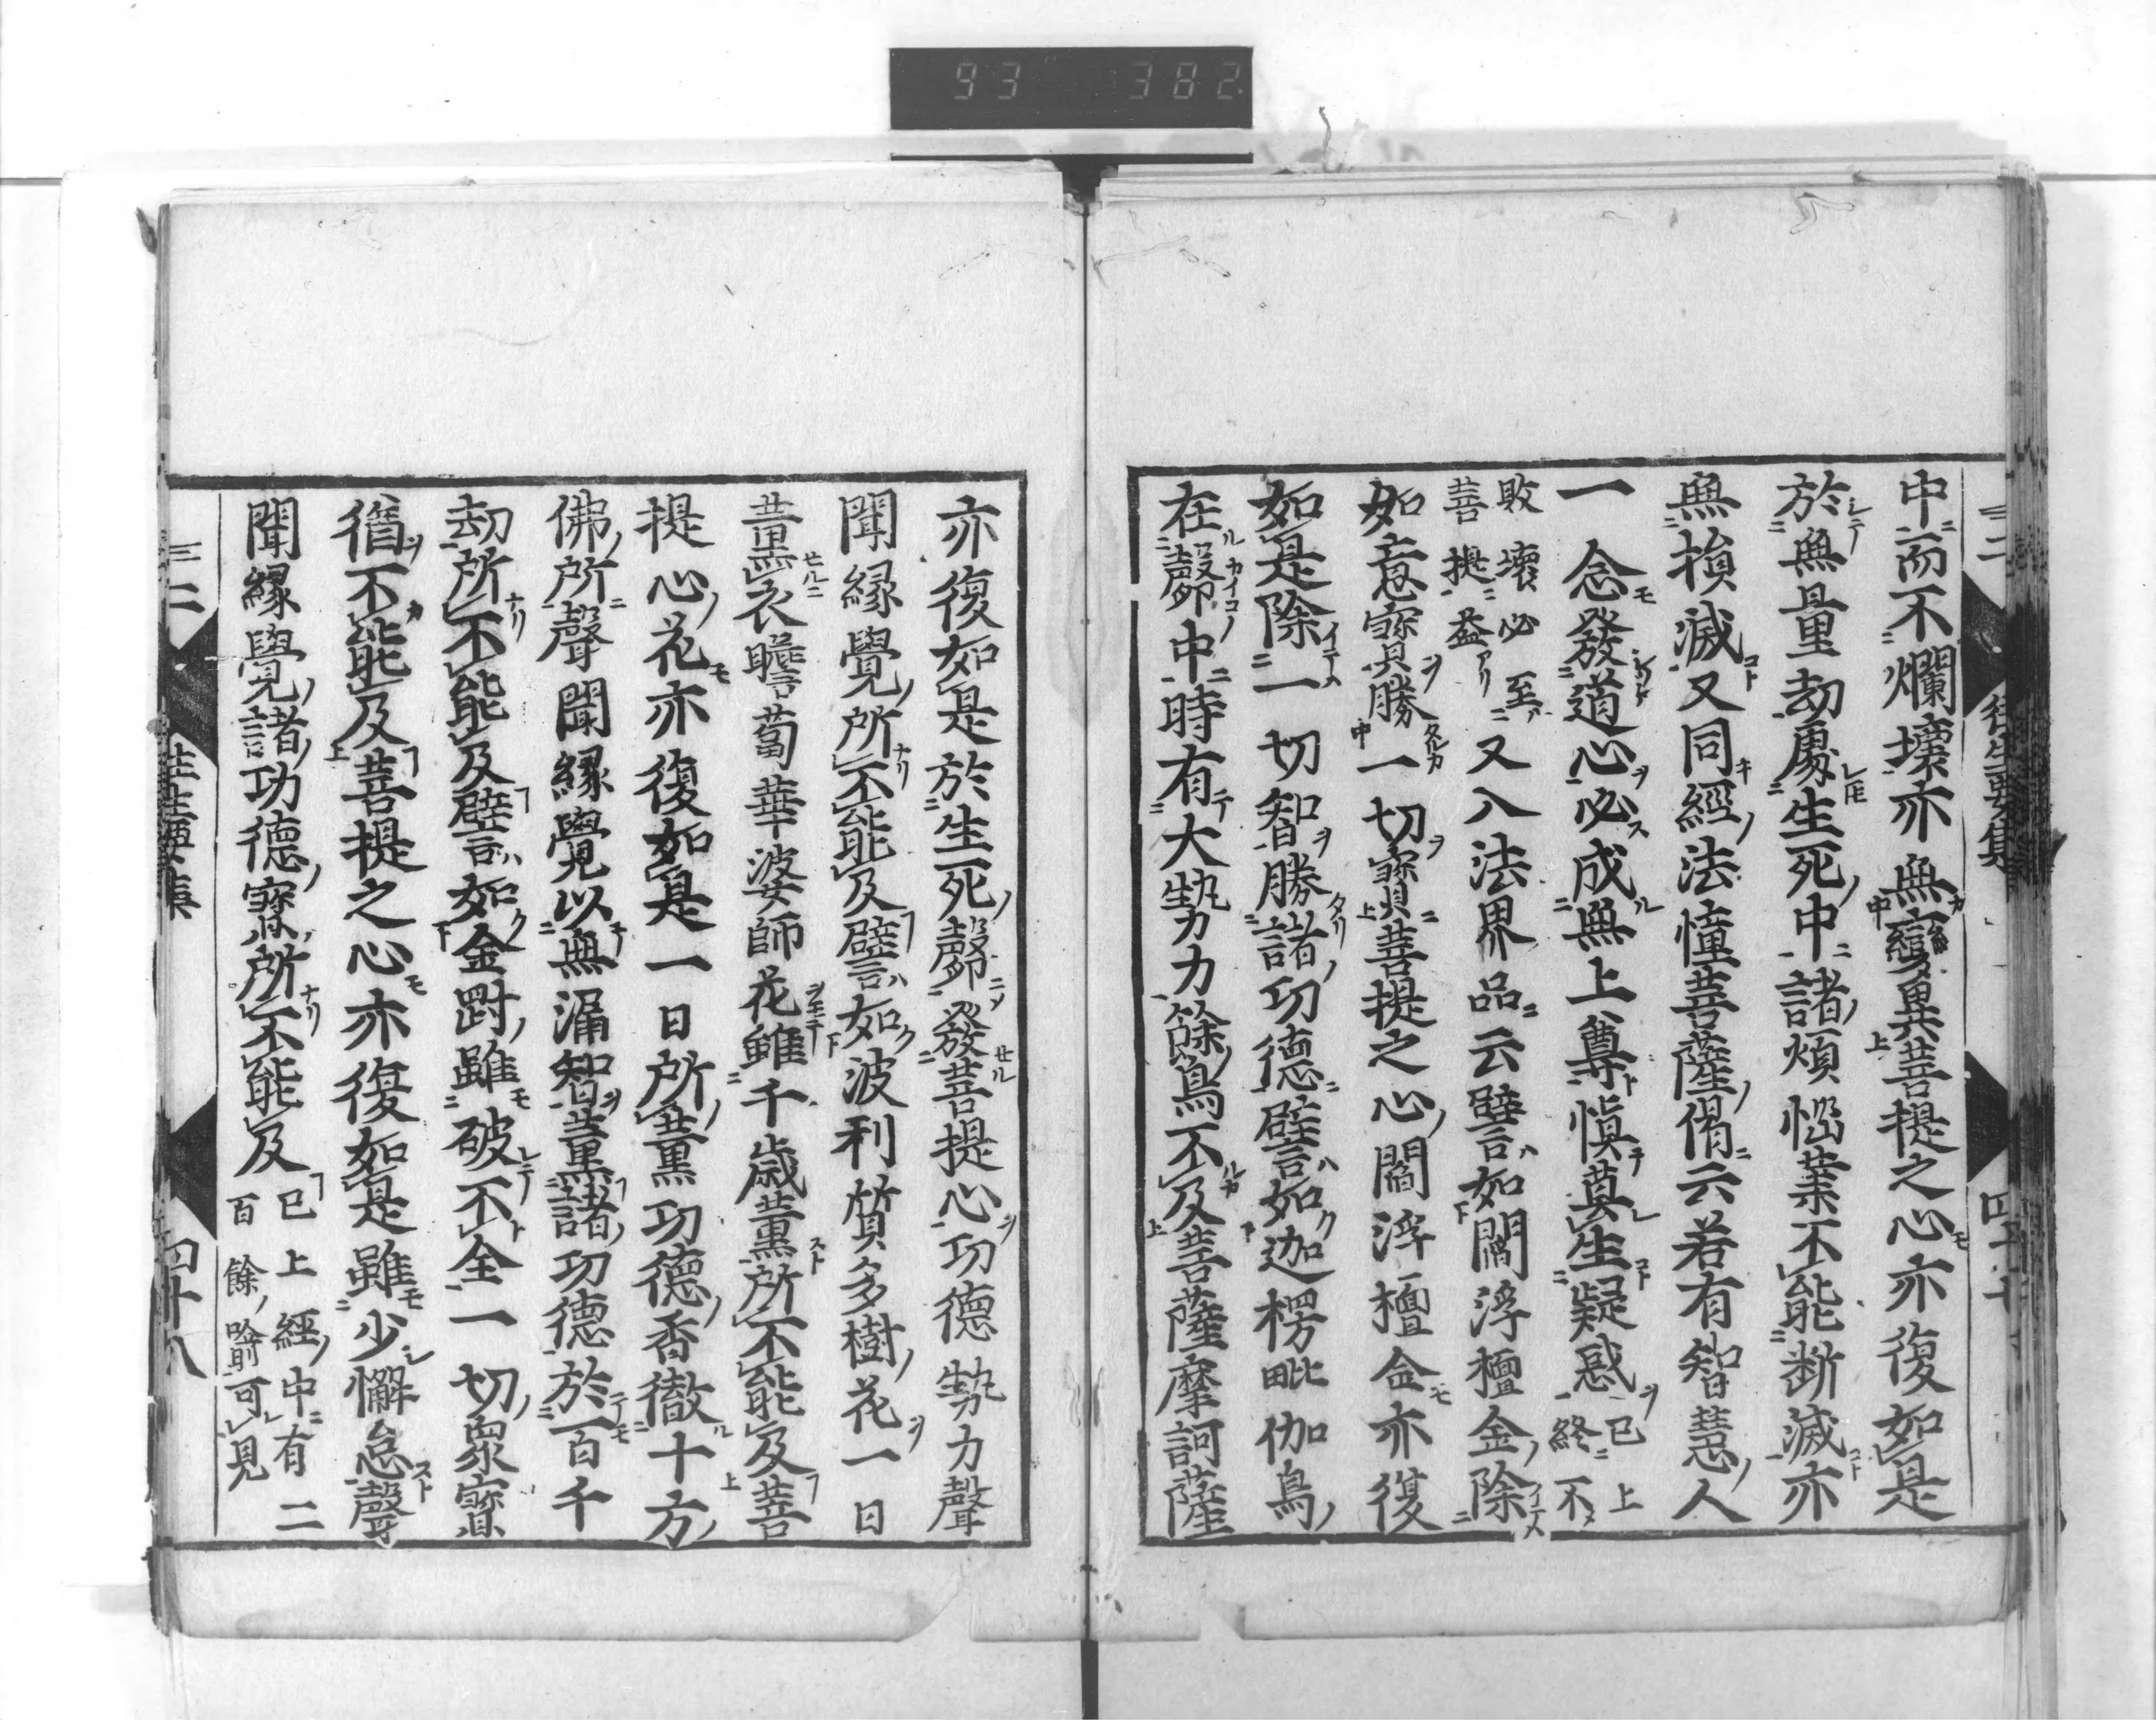 93 382
中而不爛壞亦無變異菩提之心亦復如是
於無量劫處生死中諸煩惱業不能斷滅亦
無損減又同經法憧菩薩偈云若有智慧人
一念發道心必成無上尊慎莫生疑惑已上終不
敗壞必至菩提益又入法界品云譬如閻浮檀金除
如意寶勝一切寶菩提之心閻浮檀金亦復
如是除一切智勝諸功德譬如迦楞毗伽鳥
在㲉中時有大勢力餘鳥不及菩薩摩訶薩
亦復如是於生死㲉發菩提心功德勢力聲
聞緣覺所不能及譬如波利質多樹花一日
薰衣瞻蔔華婆師花雖千歲薰所不能及菩
提心花亦復如是一日所薰功德香徹十方
佛所聲聞緣覺以無漏智薰諸功德於百千
劫所不能及譬如金剛雖破不全一切衆寶
猶不能及菩提之心亦復如是雖少懈怠聲
聞緣覺諸功德寶所不能及已上經中有二百餘喻可見
往生要集
四十八